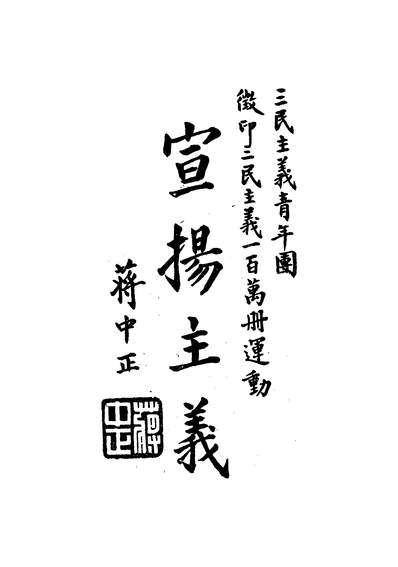 三民主義青年團
徵印三民主義一百萬册運動
宣揚主義
蔣中正
蔣中正